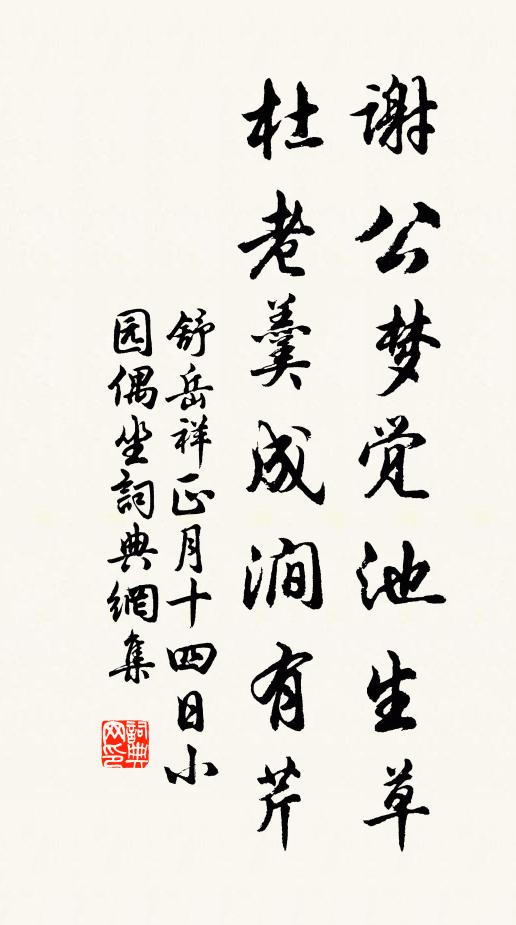 谢公梦觉池生草
杜老羹成涧有芹
舒岳祥正月十四日小
园偶坐詞典網集
詞典
网印